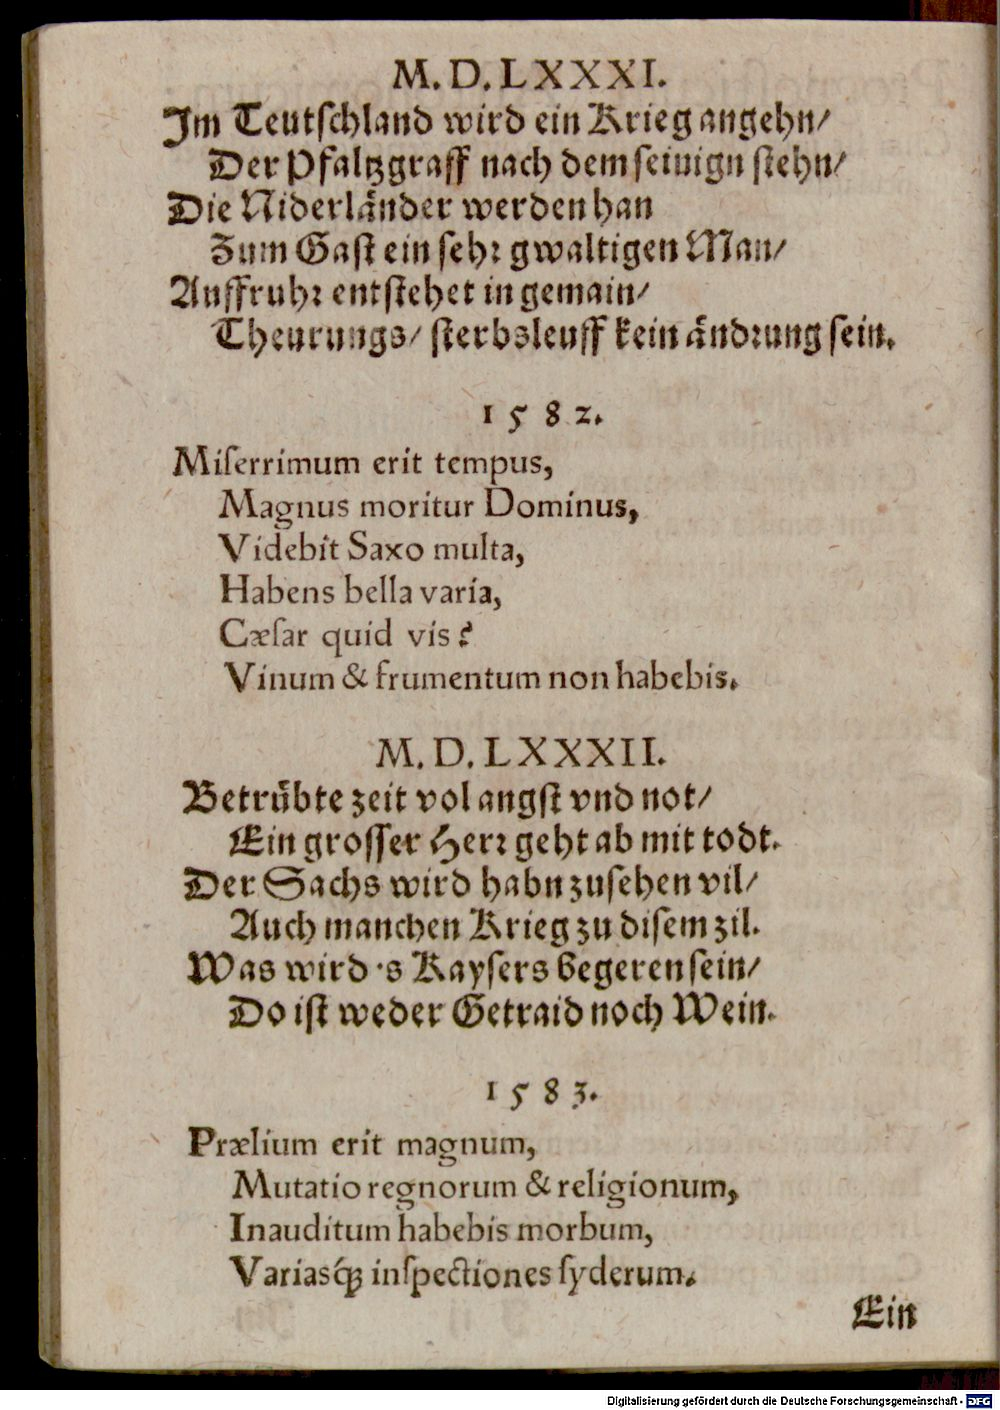 M. D. LXXXI.
Im Teutſchland wird ein Krieg angehn/
Der Pfaltzgraff nach dem ſeinign ſtehn/
Die Niderlaͤnder werden han
Zum Gaſt ein ſehr gwaltigen Man/
Auffruhr entſtehet in gemain/
Theurungs/ ſterbsleuff kein aͤndrung ſein.
1582.
Miſerrimum erit tempus,
Magnus moritur Dominus,
Videbit Saxo multa,
Habens bella varia,
Cæſar quid vis?
Vinum & frumentum non habebis.
M. D. LXXXII.
Betruͤbte zeit vol angſt vnd not/
Ein groſſer Herr geht ab mit todt.
Der Sachs wird habn zuſehen vil/
Auch manchen Krieg zu diſem zil.
Was wird 's Kayſers begeren ſein/
Do iſt weder Getraid noch Wein.
1583.
Prælium erit magnum,
Mutatio regnorum & religionum,
Inauditum habebis morbum,
Variasq́ꝫ inſpectiones ſyderum.
Ein
Digitalisierung gefördert durch die Deutsche Forschungsgemeinschaft - DFG